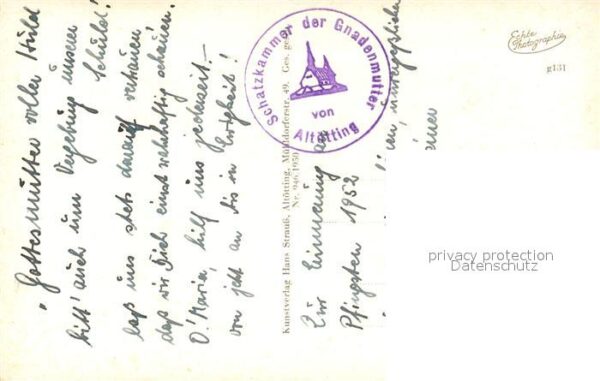 "Gottesmutter voller Huld
bitt' auch um Vergebung unserer Schuld!
laß uns stets darauf vertrauen
daß wir Dich einst wahrhaftig schauen.
O! Maria, hilf uns jederzeit. —
von jetzt an bis in Ewigkeit!
Schatzkammer der Gnadenmutter
von
Altötting
Kunstverlag Hans Strauß, Altötting, Mühldorferstr. 49. Ges. ge
Nr. 946/1950
Zur Erinnerung an
Pfingsten 1952
Echte
Photographie
g131
privacy protection
Datenschutz